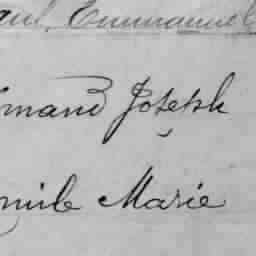 aul, Emmanuel
rmand Joseph
mile Marie